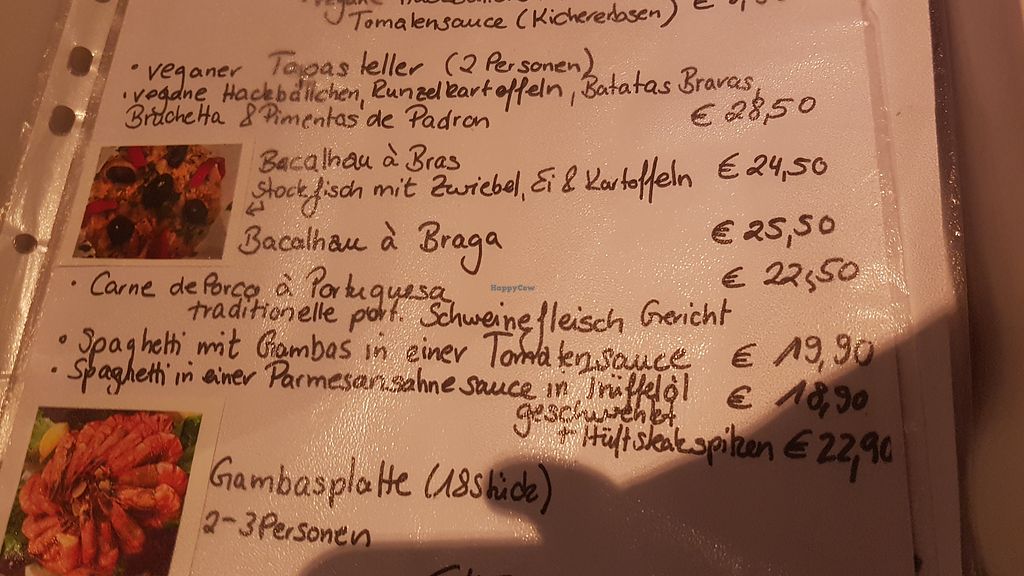 Tomatensauce (Kichererbsen) €
• veganer Tapas teller (2 Personen)
• vegane Hackbällchen, Runzelkartoffeln, Batatas Bravas,
Bruchetta & Pimentas de Padron € 28,50
Bacalhau à Bras € 24,50
Stockfisch mit Zwiebel, Ei & Kartoffeln
Bacalhau à Braga € 25,50
• Carne de Porco à Portuguesa € 22,50
traditionelle port. Schweinefleisch Gericht
• Spaghetti mit Gambas in einer Tomatensauce € 19,90
• Spaghetti in einer Parmesansahnesauce in Trüffelöl € 18,90
geschwenkt
+ Hüftsteakspitzen € 22,90
Gambasplatte (18 Stück)
2-3 Personen
HappyCow